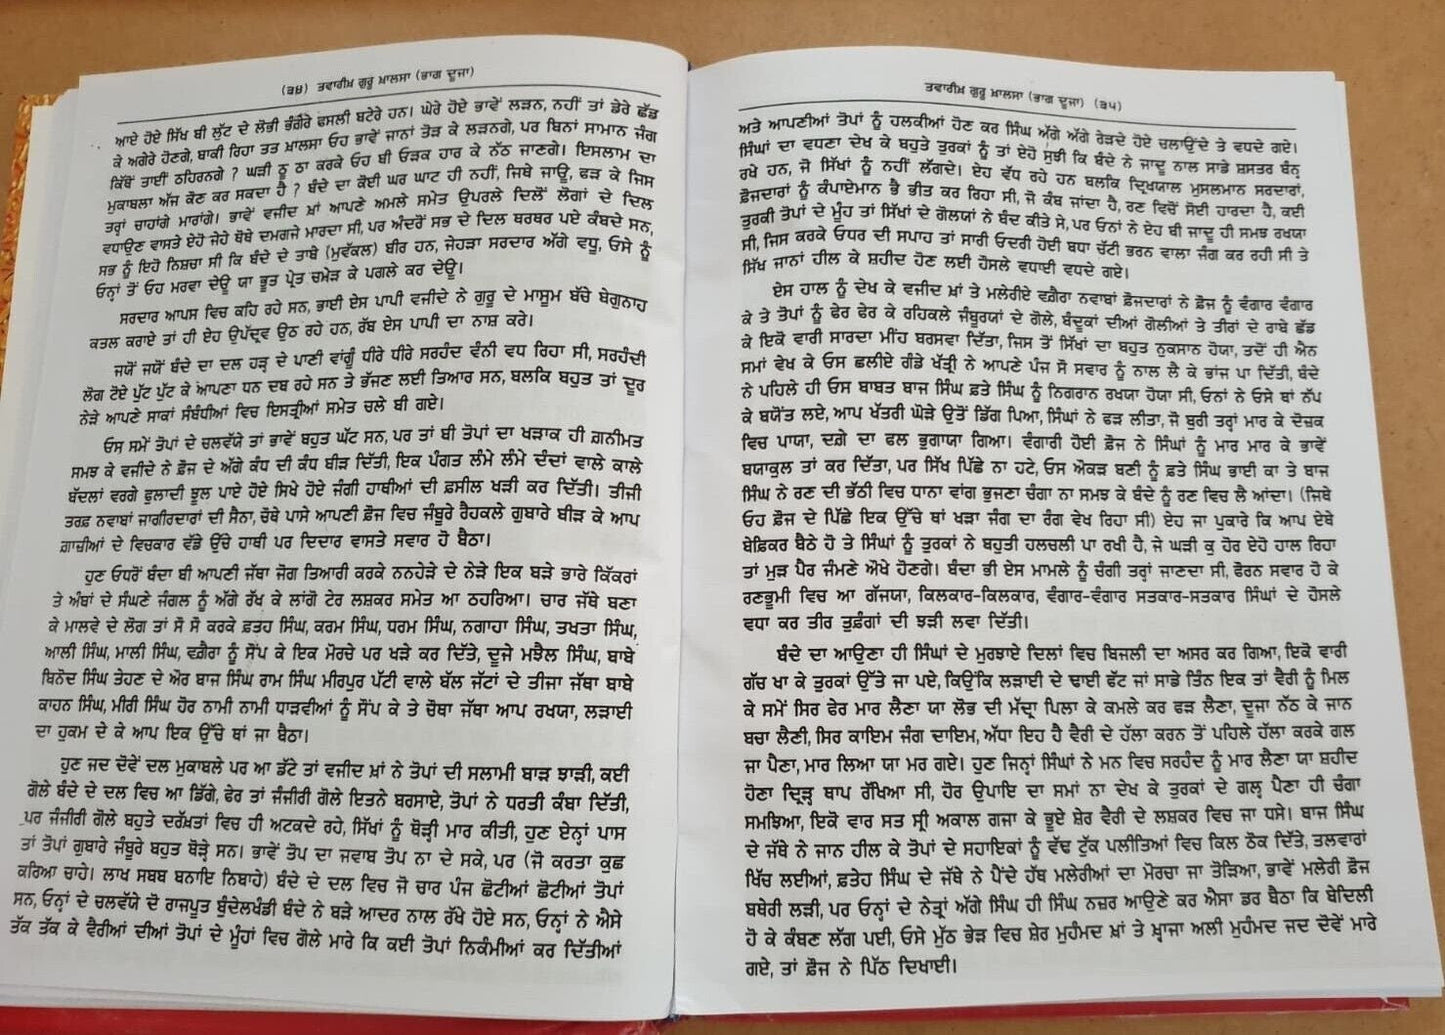 (੩੪) ਤਵਾਰੀਖ਼ ਗੁਰੂ ਖ਼ਾਲਸਾ (ਭਾਗ ਦੂਜਾ)
ਆਏ ਹੋਏ ਸਿੱਖ ਬੀ ਲੁੱਟ ਦੇ ਲੋਭੀ ਭੰਗੌਰੇ ਫਸਲੀ ਬਟੇਰੇ ਹਨ। ਘੇਰੇ ਹੋਏ ਭਾਵੇਂ ਲੜਨ, ਨਹੀਂ ਤਾਂ ਡੇਰੇ ਛੱਡ
ਕੇ ਅਗੇਰੇ ਹੋਣਗੇ, ਬਾਕੀ ਰਿਹਾ ਤਤ ਖ਼ਾਲਸਾ ਓਹ ਭਾਵੇਂ ਜਾਨਾਂ ਤੋੜ ਕੇ ਲੜਨਗੇ, ਪਰ ਬਿਨਾਂ ਸਾਮਾਨ ਜੰਗ
ਕਿੱਥੋਂ ਤਾਈਂ ਠਹਿਰਨਗੇ ? ਘੜੀ ਨੂ ਠਾ ਕਰਕੇ ਓਹ ਬੀ ਓੜਕ ਹਾਰ ਕੇ ਨੱਠ ਜਾਣਗੇ। ਇਸਲਾਮ ਦਾ
ਮੁਕਾਬਲਾ ਅੱਜ ਕੋਣ ਕਰ ਸਕਦਾ ਹੈ ? ਬੰਦੇ ਦਾ ਕੋਈ ਘਰ ਘਾਟ ਹੀ ਨਹੀਂ, ਜਿਥੇ ਜਾਊ, ਫੜ ਕੇ ਜਿਸ
ਤਰ੍ਹਾਂ ਚਾਹਾਂਗੇ ਮਾਰਾਂਗੇ। ਭਾਵੇਂ ਵਜੀਦ ਖ਼ਾਂ ਆਪਣੇ ਅਮਲੇ ਸਮੇਤ ਉਪਰਲੇ ਦਿਲੋਂ ਲੋਗਾਂ ਦੇ ਦਿਲ
ਵਧਾਉਣ ਵਾਸਤੇ ਏਹੋ ਜੇਹੇ ਥੋਥੇ ਦਮਗਜੇ ਮਾਰਦਾ ਸੀ, ਪਰ ਅੰਦਰੋਂ ਸਭ ਦੇ ਦਿਲ ਥਰਥਰ ਪਏ ਕੰਬਦੇ ਸਨ,
ਸਭ ਨੂੰ ਇਹੋ ਨਿਸ਼ਚਾ ਸੀ ਕਿ ਬੰਦੇ ਦੇ ਤਾਬੇ (ਮੁਵੱਕਲ) ਬੀਰ ਹਨ, ਜੇਹੜਾ ਸਰਦਾਰ ਅੱਗੇ ਵਧੂ, ਓਸੇ ਨੂੰ
ਓਨ੍ਹਾਂ ਤੋਂ ਓਹ ਮਰਵਾ ਦੇਊ ਯਾ ਭੂਤ ਪ੍ਰੇਤ ਚਮੇੜ ਕੇ ਪਗਲੇ ਕਰ ਦੇਊ।
ਸਰਦਾਰ ਆਪਸ ਵਿਚ ਕਹਿ ਰਹੇ ਸਨ, ਭਾਈ ਏਸ ਪਾਪੀ ਵਜੀਦੇ ਨੇ ਗੁਰੂ ਦੇ ਮਾਸੂਮ ਬੱਚੇ ਬੇਗੁਨਾਹ
ਕਤਲ ਕਰਾਏ ਤਾਂ ਹੀ ਏਹ ਉਪੱਦ੍ਰਵ ਉਠ ਰਹੇ ਹਨ, ਰੱਬ ਏਸ ਪਾਪੀ ਦਾ ਨਾਸ਼ ਕਰੇ।
ਜਯੋਂ ਜਯੋਂ ਬੰਦੇ ਦਾ ਦਲ ਹੜ੍ਹ ਦੇ ਪਾਣੀ ਵਾਂਗੂੰ ਧੀਰੇ ਧੀਰੇ ਸਰਹੰਦ ਵੰਨੀ ਵਧ ਰਿਹਾ ਸੀ, ਸਰਹੰਦੀ
ਲੋਗ ਟੋਏ ਪੁੱਟ ਪੁੱਟ ਕੇ ਆਪਣਾ ਧਨ ਦਬ ਰਹੇ ਸਨ ਤੇ ਭੱਜਣ ਲਈ ਤਿਆਰ ਸਨ, ਬਲਕਿ ਬਹੁਤ ਤਾਂ ਦੂਰ
ਨੇੜੇ ਆਪਣੇ ਸਾਕਾਂ ਸੰਬੰਧੀਆਂ ਵਿਚ ਇਸਤ੍ਰੀਆਂ ਸਮੇਤ ਚਲੇ ਬੀ ਗਏ।
ਓਸ ਸਮੇਂ ਤੋਪਾਂ ਦੇ ਚਲਵੱਯੇ ਤਾਂ ਭਾਵੇਂ ਬਹੁਤ ਘੱਟ ਸਨ, ਪਰ ਤਾਂ ਬੀ ਤੋਪਾਂ ਦਾ ਖੜਾਕ ਹੀ ਗ਼ਨੀਮਤ
ਸਮਝ ਕੇ ਵਜੀਦੇ ਨੇ ਫ਼ੌਜ ਦੇ ਅੱਗੇ ਕੰਧ ਦੀ ਕੰਧ ਬੀੜ ਦਿੱਤੀ, ਇਕ ਪੰਗਤ ਲੰਮੇ ਲੰਮੇ ਦੰਦਾਂ ਵਾਲੇ ਕਾਲੇ
ਬੱਦਲਾਂ ਵਰਗੇ ਫੁਲਾਦੀ ਝੂਲ ਪਾਏ ਹੋਏ ਸਿਖੇ ਹੋਏ ਜੰਗੀ ਹਾਥੀਆਂ ਦੀ ਫ਼ਸੀਲ ਖੜੀ ਕਰ ਦਿੱਤੀ। ਤੀਜੀ
ਤਰਫ਼ ਨਵਾਬਾਂ ਜਾਗੀਰਦਾਰਾਂ ਦੀ ਸੈਨਾ, ਚੋਥੇ ਪਾਸੇ ਆਪਣੀ ਫ਼ੌਜ ਵਿਚ ਜੰਬੂਰੇ ਰੈਹਕਲੇ ਗੁਬਾਰੇ ਬੀੜ ਕੇ ਆਪ
ਗ਼ਾਜ਼ੀਆਂ ਦੇ ਵਿਚਕਾਰ ਵੱਡੇ ਉੱਚੇ ਹਾਥੀ ਪਰ ਦਿਦਾਰ ਵਾਸਤੇ ਸਵਾਰ ਹੋ ਬੈਠਾ।
ਹੁਣ ਓਧਰੋਂ ਬੰਦਾ ਬੀ ਆਪਣੀ ਜੱਥਾ ਜੋਗ ਤਿਆਰੀ ਕਰਕੇ ਨਨਹੇੜੇ ਦੇ ਨੇੜੇ ਇਕ ਬੜੇ ਭਾਰੇ ਕਿੱਕਰਾਂ
ਤੇ ਅੰਬਾਂ ਦੇ ਸੰਘਣੇ ਜੰਗਲ ਨੂੰ ਅੱਗੇ ਰੱਖ ਕੇ ਲਾਂਗੋ ਟੇਰ ਲਸ਼ਕਰ ਸਮੇਤ ਆ ਠਹਰਿਆ। ਚਾਰ ਜੱਥੇ ਬਣਾ
ਕੇ ਮਾਲਵੇ ਦੇ ਲੋਗ ਤਾਂ ਸੌ ਸੌ ਕਰਕੇ ਫ਼ਤਹ ਸਿੰਘ, ਕਰਮ ਸਿੰਘ, ਧਰਮ ਸਿੰਘ, ਨਗਾਹਾ ਸਿੰਘ, ਤਖਤਾ ਸਿੰਘ,
ਆਲੀ ਸਿੰਘ, ਮਾਲੀ ਸਿੰਘ, ਵਗ਼ੈਰਾ ਨੂੰ ਸੌਂਪ ਕੇ ਇਕ ਮੋਰਚੇ ਪਰ ਖੜੇ ਕਰ ਦਿੱਤੇ, ਦੂਜੇ ਮਝੈਲ ਸਿੰਘ, ਬਾਬੇ
ਬਿਨੋਦ ਸਿੰਘ ਤੇਹਣ ਦੇ ਔਰ ਬਾਜ ਸਿੰਘ ਰਾਮ ਸਿੰਘ ਮੀਰਪੁਰ ਪੱਟੀ ਵਾਲੇ ਬੱਲ ਜੱਟਾਂ ਦੇ ਤੀਜਾ ਜੱਥਾ ਬਾਬੇ
ਕਾਹਨ ਸਿੰਘ, ਮੀਰੀ ਸਿੰਘ ਹੋਰ ਨਾਮੀ ਨਾਮੀ ਧਾੜਵੀਆਂ ਨੂੰ ਸੌਂਪ ਕੇ ਤੇ ਚੋਥਾ ਜੱਥਾ ਆਪ ਰਖਯਾ, ਲੜਾਈ
ਦਾ ਹੁਕਮ ਦੇ ਕੇ ਆਪ ਇਕ ਉੱਚੇ ਥਾਂ ਜਾ ਬੈਠਾ।
ਹੁਣ ਜਦ ਦੋਵੇਂ ਦਲ ਮੁਕਾਬਲੇ ਪਰ ਆ ਡੱਟੇ ਤਾਂ ਵਜੀਦ ਖ਼ਾਂ ਨੇ ਤੋਪਾਂ ਦੀ ਸਲਾਮੀ ਬਾੜ ਝਾੜੀ, ਕਈ
ਗੋਲੇ ਬੰਦੇ ਦੇ ਦਲ ਵਿਚ ਆ ਡਿੱਗੇ, ਫੇਰ ਤਾਂ ਜੰਜੀਰੀ ਗੋਲੇ ਇਤਨੇ ਬਰਸਾਏ, ਤੋਪਾਂ ਨੇ ਧਰਤੀ ਕੰਬਾ ਦਿੱਤੀ,
ਪਰ ਜੰਜੀਰੀ ਗੋਲੇ ਬਹੁਤੇ ਦਰੱਖ਼ਤਾਂ ਵਿਚ ਹੀ ਅਟਕਦੇ ਰਹੇ, ਸਿੱਖਾਂ ਨੂੰ ਥੋੜ੍ਹੀ ਮਾਰ ਕੀਤੀ, ਹੁਣ ਏਨ੍ਹਾਂ ਪਾਸ
ਤਾਂ ਤੋਪਾਂ ਗੁਬਾਰੇ ਜੰਬੂਰੇ ਬਹੁਤ ਥੋੜ੍ਹੇ ਸਨ। ਭਾਵੇਂ ਤੋਪ ਦਾ ਜਵਾਬ ਤੋਪ ਨਾ ਦੇ ਸਕੇ, ਪਰ (ਜੋ ਕਰਤਾ ਕੁਛ
ਕਰਿਆ ਚਾਹੇ। ਲਾਖ ਸਬਬ ਬਨਾਇ ਨਿਬਾਹੇ) ਬੰਦੇ ਦੇ ਦਲ ਵਿਚ ਜੋ ਚਾਰ ਪੰਜ ਛੋਟੀਆਂ ਛੋਟੀਆਂ ਤੋਪਾਂ
ਸਨ, ਓਨ੍ਹਾਂ ਦੇ ਚਲਵੱਯੇ ਦੋ ਰਾਜਪੂਤ ਬੁੰਦੇਲਖੰਡੀ ਬੰਦੇ ਨੇ ਬੜੇ ਆਦਰ ਨਾਲ ਰੱਖੇ ਹੋਏ ਸਨ, ਓਨ੍ਹਾਂ ਨੇ ਐਸੇ
ਤੱਕ ਤੱਕ ਕੇ ਵੈਰੀਆਂ ਦੀਆਂ ਤੋਪਾਂ ਦੇ ਮੂੰਹਾਂ ਵਿਚ ਗੋਲੇ ਮਾਰੇ ਕਿ ਕਈ ਤੋਪਾਂ ਨਿਕੰਮੀਆਂ ਕਰ ਦਿੱਤੀਆਂ
ਤਵਾਰੀਖ਼ ਗੁਰੂ ਖ਼ਾਲਸਾ (ਭਾਗ ਦੂਜਾ) (੩੫)
ਅਤੇ ਆਪਣੀਆਂ ਤੋਪਾਂ ਨੂੰ ਹਲਕੀਆਂ ਹੋਣ ਕਰ ਸਿੰਘ ਅੱਗੇ ਅੱਗੇ ਰੇੜਦੇ ਹੋਏ ਚਲਾਉਂਦੇ ਤੇ ਵਧਦੇ ਗਏ।
ਸਿੰਘਾਂ ਦਾ ਵਧਣਾ ਦੇਖ ਕੇ ਬਹੁਤੇ ਤੁਰਕਾਂ ਨੂੰ ਤਾਂ ਏਹੋ ਸੁਝੀ ਕਿ ਬੰਦੇ ਨੇ ਜਾਦੂ ਨਾਲ ਸਾਡੇ ਸ਼ਸਤਰ ਬੰਨ੍ਹ
ਰਖੇ ਹਨ, ਜੋ ਸਿੱਖਾਂ ਨੂੰ ਨਹੀਂ ਲੱਗਦੇ। ਏਹ ਵੱਧ ਰਹੇ ਹਨ ਬਲਕਿ ਦ੍ਰਿਖਯਾਲ ਮੁਸਲਮਾਨ ਸਰਦਾਰਾਂ,
ਫ਼ੌਜਦਾਰਾਂ ਨੂੰ ਕੰਪਾਏਮਾਨ ਭੈ ਭੀਤ ਕਰ ਰਿਹਾ ਸੀ, ਜੋ ਕੰਬ ਜਾਂਦਾ ਹੈ, ਰਣ ਵਿਚੋਂ ਸੋਈ ਹਾਰਦਾ ਹੈ, ਕਈ
ਤੁਰਕੀ ਤੋਪਾਂ ਦੇ ਮੂੰਹ ਤਾਂ ਸਿੱਖਾਂ ਦੇ ਗੋਲਯਾਂ ਨੇ ਬੰਦ ਕੀਤੇ ਸੇ, ਪਰ ਓਨਾਂ ਨੇ ਏਹ ਬੀ ਜਾਦੂ ਹੀ ਸਮਝ ਰਖਯਾ
ਸੀ, ਜਿਸ ਕਰਕੇ ਓਧਰ ਦੀ ਸਪਾਹ ਤਾਂ ਸਾਰੀ ਓਦਰੀ ਹੋਈ ਬਧਾ ਚੱਟੀ ਭਰਨ ਵਾਲਾ ਜੰਗ ਕਰ ਰਹੀ ਸੀ ਤੇ
ਸਿੱਖ ਜਾਨਾਂ ਹੀਲ ਕੇ ਸ਼ਹੀਦ ਹੋਣ ਲਈ ਹੌਸਲੇ ਵਧਾਈ ਵਧਦੇ ਗਏ।
ਏਸ ਹਾਲ ਨੂੰ ਦੇਖ ਕੇ ਵਜੀਦ ਖ਼ਾਂ ਤੇ ਮਲੇਰੀਏ ਵਗ਼ੈਰਾ ਨਵਾਬਾਂ ਫ਼ੌਜਦਾਰਾਂ ਨੇ ਫ਼ੌਜ ਨੂੰ ਵੰਗਾਰ ਵੰਗਾਰ
ਕੇ ਤੇ ਤੋਪਾਂ ਨੂੰ ਫੇਰ ਫੇਰ ਕੇ ਰਹਿਕਲੇ ਜੰਬੂਰਯਾਂ ਦੇ ਗੋਲੇ, ਬੰਦੂਕਾਂ ਦੀਆਂ ਗੋਲੀਆਂ ਤੇ ਤੀਰਾਂ ਦੇ ਰਾਬੇ ਛੱਡ
ਕੇ ਇਕੋ ਵਾਰੀ ਸਾਰਦਾ ਮੀਂਹ ਬਰਸਵਾ ਦਿੱਤਾ, ਜਿਸ ਤੋਂ ਸਿੱਖਾਂ ਦਾ ਬਹੁਤ ਨੁਕਸਾਨ ਹੋਯਾ, ਤਦੋਂ ਹੀ ਐਨ
ਸਮਾਂ ਵੇਖ ਕੇ ਓਸ ਛਲੀਏ ਗੰਡੇ ਖੱਤ੍ਰੀ ਨੇ ਆਪਣੇ ਪੰਜ ਸੌ ਸਵਾਰ ਨੂੰ ਨਾਲ ਲੈ ਕੇ ਭਾਂਜ ਪਾ ਦਿੱਤੀ, ਬੰਦੇ
ਨੇ ਪਹਿਲੇ ਹੀ ਓਸ ਬਾਬਤ ਬਾਜ ਸਿੰਘ ਫ਼ਤੇ ਸਿੰਘ ਨੂੰ ਨਿਗਰਾਨ ਰਖਯਾ ਹੋਯਾ ਸੀ, ਓਨਾਂ ਨੇ ਓਸੇ ਥਾਂ ਨੱਪ
ਕੇ ਬਯੋਂਤ ਲਏ, ਆਪ ਖੱਤਰੀ ਘੋੜੇ ਉਤੋਂ ਡਿੱਗ ਪਿਆ, ਸਿੰਘਾਂ ਨੇ ਫੜ ਲੀਤਾ, ਜੋ ਬੁਰੀ ਤਰ੍ਹਾਂ ਮਾਰ ਕੇ ਦੋਜ਼ਕ
ਵਿਚ ਪਾਯਾ, ਦਗ਼ੇ ਦਾ ਫਲ ਭੁਗਾਯਾ ਗਿਆ। ਵੰਗਾਰੀ ਹੋਈ ਫ਼ੌਜ ਨੇ ਸਿੰਘਾਂ ਨੂੰ ਮਾਰ ਮਾਰ ਕੇ ਭਾਵੇਂ
ਬਯਾਕੁਲ ਤਾਂ ਕਰ ਦਿੱਤਾ, ਪਰ ਸਿੱਖ ਪਿੱਛੇ ਨਾ ਹਟੇ, ਓਸ ਔਕੜ ਬਣੀ ਨੂੰ ਫ਼ਤੇ ਸਿੰਘ ਭਾਈ ਕਾ ਤੇ ਬਾਜ
ਸਿੰਘ ਨੇ ਰਣ ਦੀ ਭੱਠੀ ਵਿਚ ਧਾਨਾ ਵਾਂਗ ਭੁਜਣਾ ਚੰਗਾ ਨਾ ਸਮਝ ਕੇ ਬੰਦੇ ਨੂੰ ਰਣ ਵਿਚ ਲੈ ਆਂਦਾ। (ਜਿਥੇ
ਓਹ ਫ਼ੌਜ ਦੇ ਪਿੱਛੇ ਇਕ ਉੱਚੇ ਥਾਂ ਖੜਾ ਜੰਗ ਦਾ ਰੰਗ ਵੇਖ ਰਿਹਾ ਸੀ) ਏਹ ਜਾ ਪੁਕਾਰੇ ਕਿ ਆਪ ਏਥੇ
ਬੇਫ਼ਿਕਰ ਬੈਠੇ ਹੋ ਤੇ ਸਿੰਘਾਂ ਨੂੰ ਤੁਰਕਾਂ ਨੇ ਬਹੁਤੀ ਹਲਚਲੀ ਪਾ ਰਖੀ ਹੈ, ਜੇ ਘੜੀ ਕੁ ਹੋਰ ਏਹੋ ਹਾਲ ਰਿਹਾ
ਤਾਂ ਮੁੜ ਪੈਰ ਜੰਮਣੇ ਔਖੇ ਹੋਣਗੇ। ਬੰਦਾ ਭੀ ਏਸ ਮਾਮਲੇ ਨੂੰ ਚੰਗੀ ਤਰ੍ਹਾਂ ਜਾਣਦਾ ਸੀ, ਫੌਰਨ ਸਵਾਰ ਹੋ ਕੇ
ਰਣਭੂਮੀ ਵਿਚ ਆ ਗੱਜਯਾ, ਕਿਲਕਾਰ-ਕਿਲਕਾਰ, ਵੰਗਾਰ-ਵੰਗਾਰ ਸਤਕਾਰ-ਸਤਕਾਰ ਸਿੰਘਾਂ ਦੇ ਹੌਸਲੇ
ਵਧਾ ਕਰ ਤੀਰ ਤੁਫ਼ੰਗਾਂ ਦੀ ਝੜੀ ਲਵਾ ਦਿੱਤੀ।
ਬੰਦੇ ਦਾ ਆਉਣਾ ਹੀ ਸਿੰਘਾਂ ਦੇ ਮੁਰਝਾਏ ਦਿਲਾਂ ਵਿਚ ਬਿਜਲੀ ਦਾ ਅਸਰ ਕਰ ਗਿਆ, ਇਕੋ ਵਾਰੀ
ਗੱਚ ਖਾ ਕੇ ਤੁਰਕਾਂ ਉੱਤੇ ਜਾ ਪਏ, ਕਿਉਂਕਿ ਲੜਾਈ ਦੇ ਢਾਈ ਫੱਟ ਜਾਂ ਸਾਡੇ ਤਿੰਨ ਇਕ ਤਾਂ ਵੈਰੀ ਨੂੰ ਮਿਲ
ਕੇ ਸਮੇਂ ਸਿਰ ਫੇਰ ਮਾਰ ਲੈਣਾ ਯਾ ਲੋਭ ਦੀ ਮੱਦ੍ਰਾ ਪਿਲਾ ਕੇ ਕਮਲੇ ਕਰ ਫੜ ਲੈਣਾ, ਦੂਜਾ ਨੱਠ ਕੇ ਜਾਨ
ਬਚਾ ਲੈਣੀ, ਸਿਰ ਕਾਇਮ ਜੰਗ ਦਾਇਮ, ਅੱਧਾ ਇਹ ਹੈ ਵੈਰੀ ਦੇ ਹੱਲਾ ਕਰਨ ਤੋਂ ਪਹਿਲੇ ਹੱਲਾ ਕਰਕੇ ਗਲ
ਜਾ ਪੈਣਾ, ਮਾਰ ਲਿਆ ਯਾ ਮਰ ਗਏ। ਹੁਣ ਜਿਨ੍ਹਾਂ ਸਿੰਘਾਂ ਨੇ ਮਨ ਵਿਚ ਸਰਹੰਦ ਨੂੰ ਮਾਰ ਲੈਣਾ ਯਾ ਸ਼ਹੀਦ
ਹੋਣਾ ਦ੍ਰਿੜ੍ਹ ਥਾਪ ਰੱਖਿਆ ਸੀ, ਹੋਰ ਉਪਾਇ ਦਾ ਸਮਾਂ ਨਾ ਦੇਖ ਕੇ ਤੁਰਕਾਂ ਦੇ ਗਲ੍ਹ ਪੈਣਾ ਹੀ ਚੰਗਾ
ਸਮਝਿਆ, ਇਕੋ ਵਾਰ ਸਤ ਸ੍ਰੀ ਅਕਾਲ ਗਜਾ ਕੇ ਭੂਏ ਸ਼ੇਰ ਵੈਰੀ ਦੇ ਲਸ਼ਕਰ ਵਿਚ ਜਾ ਧਸੇ। ਬਾਜ ਸਿੰਘ
ਦੇ ਜੱਥੇ ਨੇ ਜਾਨ ਹੀਲ ਕੇ ਤੋਪਾਂ ਦੇ ਸਹਾਇਕਾਂ ਨੂੰ ਵੱਢ ਟੁੱਕ ਪਲੀਤਿਆਂ ਵਿਚ ਕਿਲ ਠੋਕ ਦਿੱਤੇ, ਤਲਵਾਰਾਂ
ਖਿੱਚ ਲਈਆਂ, ਫ਼ਤੇਹ ਸਿੰਘ ਦੇ ਜੱਥੇ ਨੇ ਪੈਂਦੇ ਹੱਥ ਮਲੇਰੀਆਂ ਦਾ ਮੋਰਚਾ ਜਾ ਤੋੜਿਆ, ਭਾਵੇਂ ਮਲੇਰੀ ਫ਼ੌਜ
ਬਥੇਰੀ ਲੜੀ, ਪਰ ਓਨ੍ਹਾਂ ਦੇ ਨੇਤ੍ਰਾਂ ਅੱਗੇ ਸਿੰਘ ਹੀ ਸਿੰਘ ਨਜ਼ਰ ਆਉਣੇ ਕਰ ਐਸਾ ਡਰ ਬੈਠਾ ਕਿ ਬੇਦਿਲੀ
ਹੋ ਕੇ ਕੰਬਣ ਲੱਗ ਪਈ, ਓਸੇ ਮੁੱਠ ਭੇੜ ਵਿਚ ਸ਼ੇਰ ਮੁਹੰਮਦ ਖ਼ਾਂ ਤੇ ਖ਼੍ਵਾਜਾ ਅਲੀ ਮੁਹੰਮਦ ਜਦ ਦੋਵੇਂ ਮਾਰੇ
ਗਏ, ਤਾਂ ਫ਼ੌਜ ਨੇ ਪਿੱਠ ਦਿਖਾਈ।